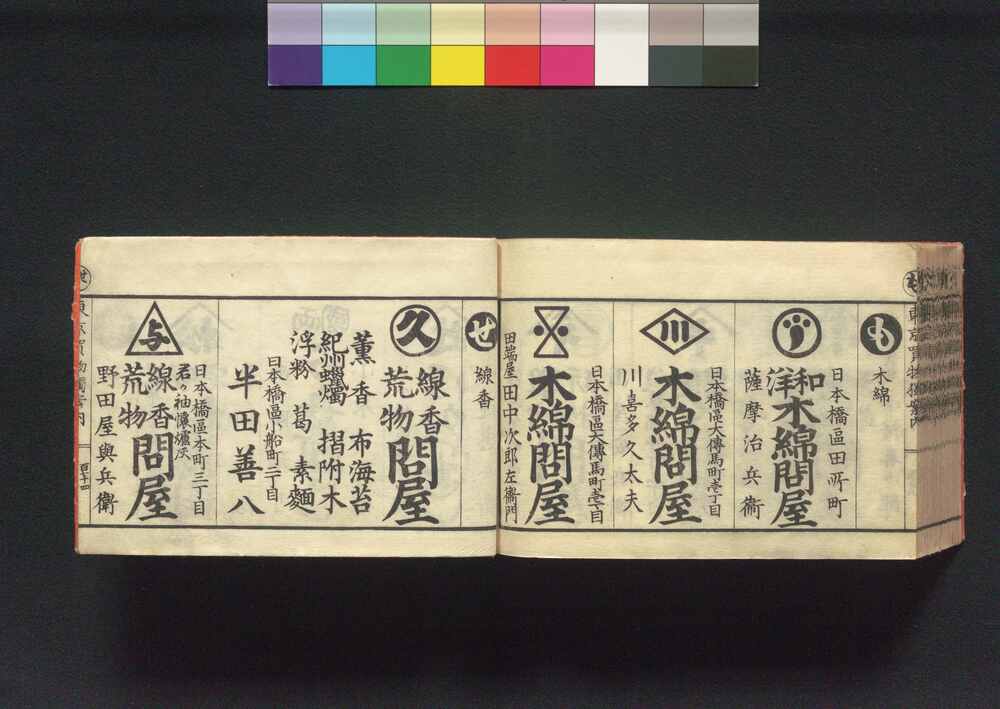 も
木綿
日本橋區田所町
和洋木綿問屋
薩摩治兵衞
日本橋區大傳馬町壱丁目
川
木綿問屋
川喜多久太夫
日本橋區大傳馬町壱丁目
木綿問屋
田端屋田中次郎左衞門
せ
線香
久
線香荒物問屋
薫香 布海苔
紀州蠟燭 摺附木
浮粉 葛 素麵
日本橋區小船町二丁目
半田善八
与
日本橋區本町三丁目
君か袖懷爐灰
線香荒物問屋
野田屋與兵衞
せ
東京買物獨案内
百十四
も
東京買物獨案内